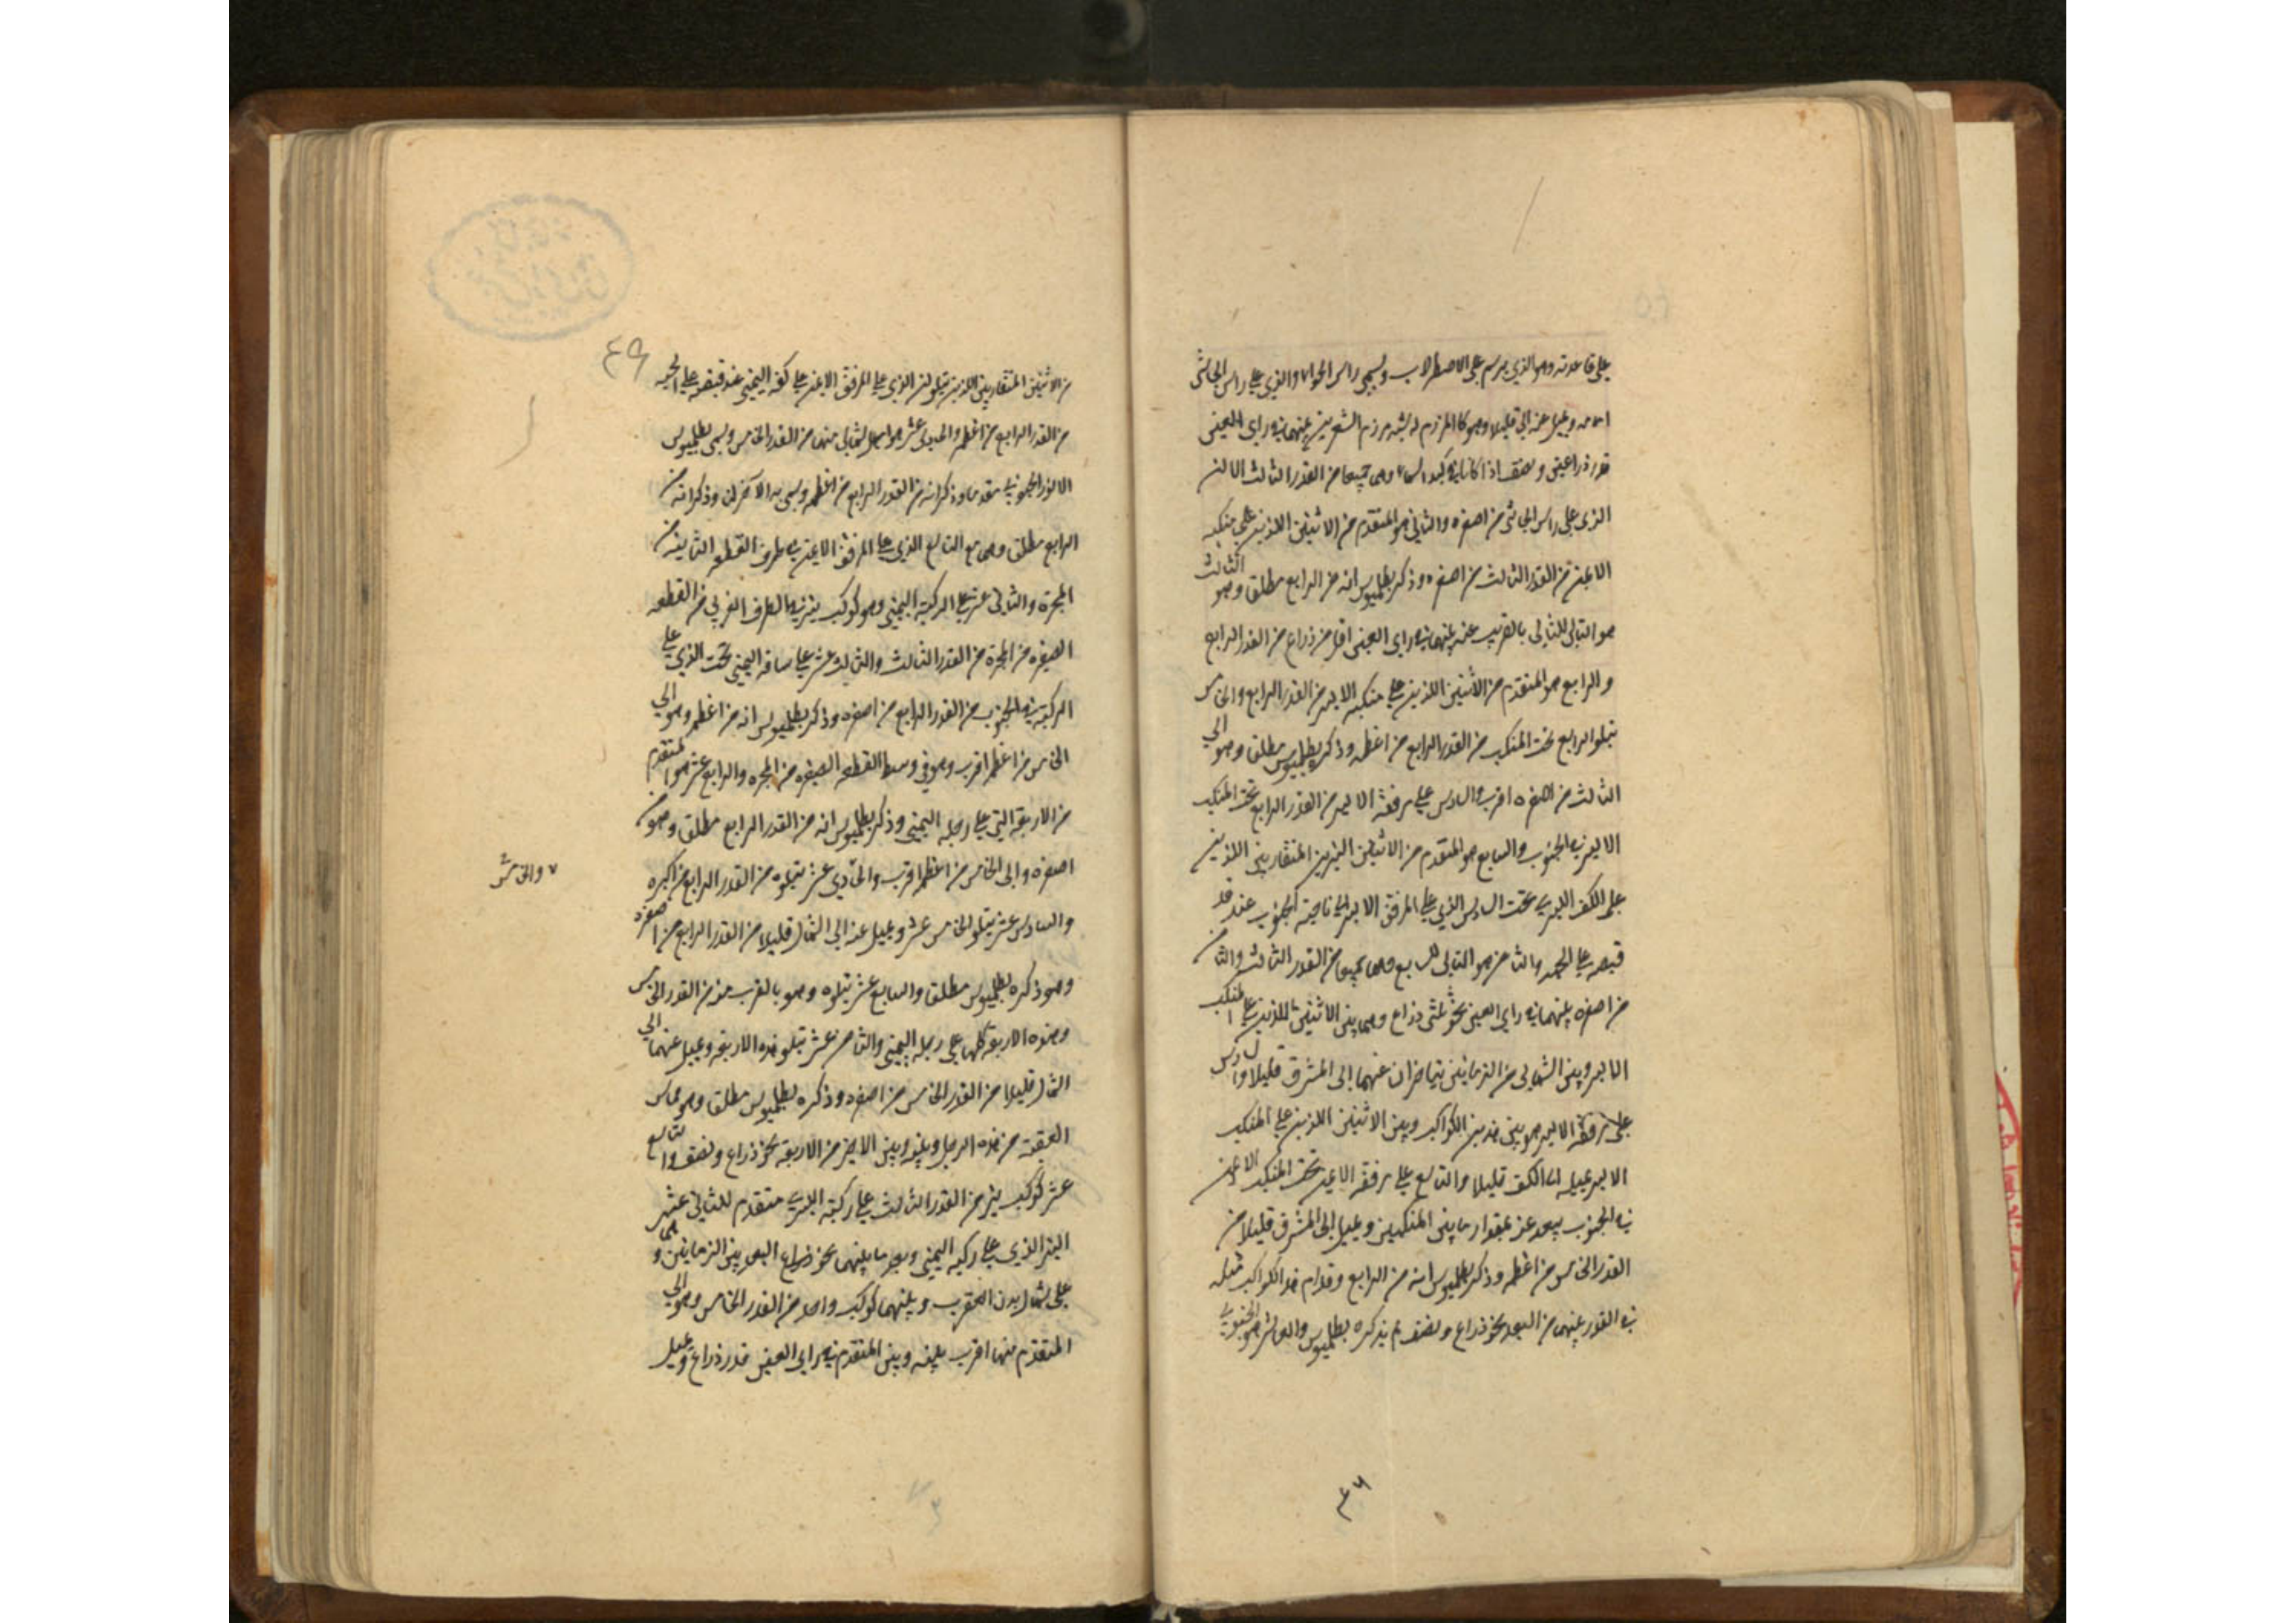 على قاعدته وهو الذي يرسم على الاصطرلاب ويسمى راس الحوا والذي على راس الجاثي
امامه ويميل عنه الى قليلا وهو كالمرزم له يشبه مرزم الشعريين بينهما في راي العين
قدر ذراعين ونصف اذا كانا في كبد السماء وهي جميعا من القدر الثالث الا ان
الذي على راس الجاثي من اصغره والثاني هو المتقدم من الاثنين اللذين على منكبه
الايمن من القدر الثالث من اصغره وذكر بطلميوس انه من الرابع مطلق وهو الثالث
هو التالي للثاني بالقرب عنه بينهما في راي العين اقل من ذراع من القدر الرابع
والرابع هو المتقدم من الاثنين اللذين على منكبه الايسر من القدر الرابع والخامس
يتلو الرابع تحت المنكب من القدر الرابع من اعظمه وذكره بطلميوس مطلق وهو الى
الثالث من اصغره اقرب والسادس على مرفقه الايسر من القدر الرابع تحت المنكب
الايسر في الجنوب والسابع هو المتقدم من الاثنين النيرين المتقاربين اللذين
على الكف اليسرى تحت السادس الذي على المرفق الايسر الى ناحية الجنوب عند قد
قبضه على الحية والثامن هو التالي للسابع وهما جميعا من القدر الثالث والثامن
من اصغره بينهما في راي العين نحو ثلثي ذراع وهما بين الاثنين اللذين على المنكب
الايسر وبين الشمالي من الزبانيين يتياسران عنهما الى المشرق قليلا والسادس
على مرفقه الايسر هو بين هذين الكواكب وبين الاثنين اللذين على المنكب
الايسر يميل الى الكف قليلا والتاسع على مرفقه الايمن تحت المنكب الايمن
في الجنوب يبعد عنه بمقدار ما بين المنكبين ويميل الى المشرق قليلا من
القدر الخامس من اعظمه وذكر بطلميوس انه من الرابع وقدام هذا الكواكب مثله
في القدر بينهما من البعد نحو ذراع ونصف لم يذكره بطلميوس والعاشر هو الجنوبي
٤٦
٤٩
من الاثنين المتقاربين اللذين يتلوان الذي على المرفق الايمن على كفه اليمنى عند قبضه على الحية
من القدر الرابع من اعظمه والحادى عشر هو الشمالي منهما من القدر الخامس ويسمى بطلميوس
الانور الجنوبي متقدما وذكر انه من القدر الرابع من اعظمه ويسمى به الآخر وذكر انه من
الرابع مطلق وهي مع التاسع الذي على المرفق الايمن في طرف القطعه الثانيه من
المجرة والثاني عشر على الركبة اليمنى وهو كوكب نير في الطرف الغربي من القطعه
الصغيره من المجرة من القدر الثالث والثالث عشر على ساقه اليمنى تحت الذي على
الركبة في الجنوب من القدر الرابع من اصغره وذكر بطلميوس انه من اعظمه وهو الى
الخامس من اعظمه اقرب وهو في وسط القطعه الصغيره من المجره والرابع عشر هو المتقدم
من الاربعة التي على رجله اليمنى وذكر بطلميوس انه من القدر الرابع مطلق وهو من
اصغره والى الخامس من اعظمه اقرب والحادي عشر يتلوه من القدر الرابع من اكبره
والخامس
والسادس عشر يتلو الخامس عشر ويميل عنه الى الشمال قليلا من القدر الرابع من اصغره
وهو ذكره بطلميوس مطلق والسابع عشر يتلوه وهو بالقرب منه من القدر الخامس
وهذه الاربعة كلها على رجله اليمنى والثامن عشر يتلو هذه الاربعة ويميل عنهما الى
الشمال قليلا من القدر الخامس من اصغره وذكره بطلميوس مطلق وهو مماس
العقبة من هذه الرجل وبينه وبين الاخير من الاربعة نحو ذراع ونصف والتاسع
عشر كوكب نير من القدر الثالث على ركبته اليسرى متقدم للثاني عشر
النير الذي على ركبة اليمنى وبعد ما بينهما نحو ذراع البعد بين الزبانيين وهما
على شمال بدن العقرب وبينهما كوكب واحد من القدر الخامس وهو الى
المتقدم منهما اقرب بينه وبين المتقدم في راي العين قدر ذراع ويميل